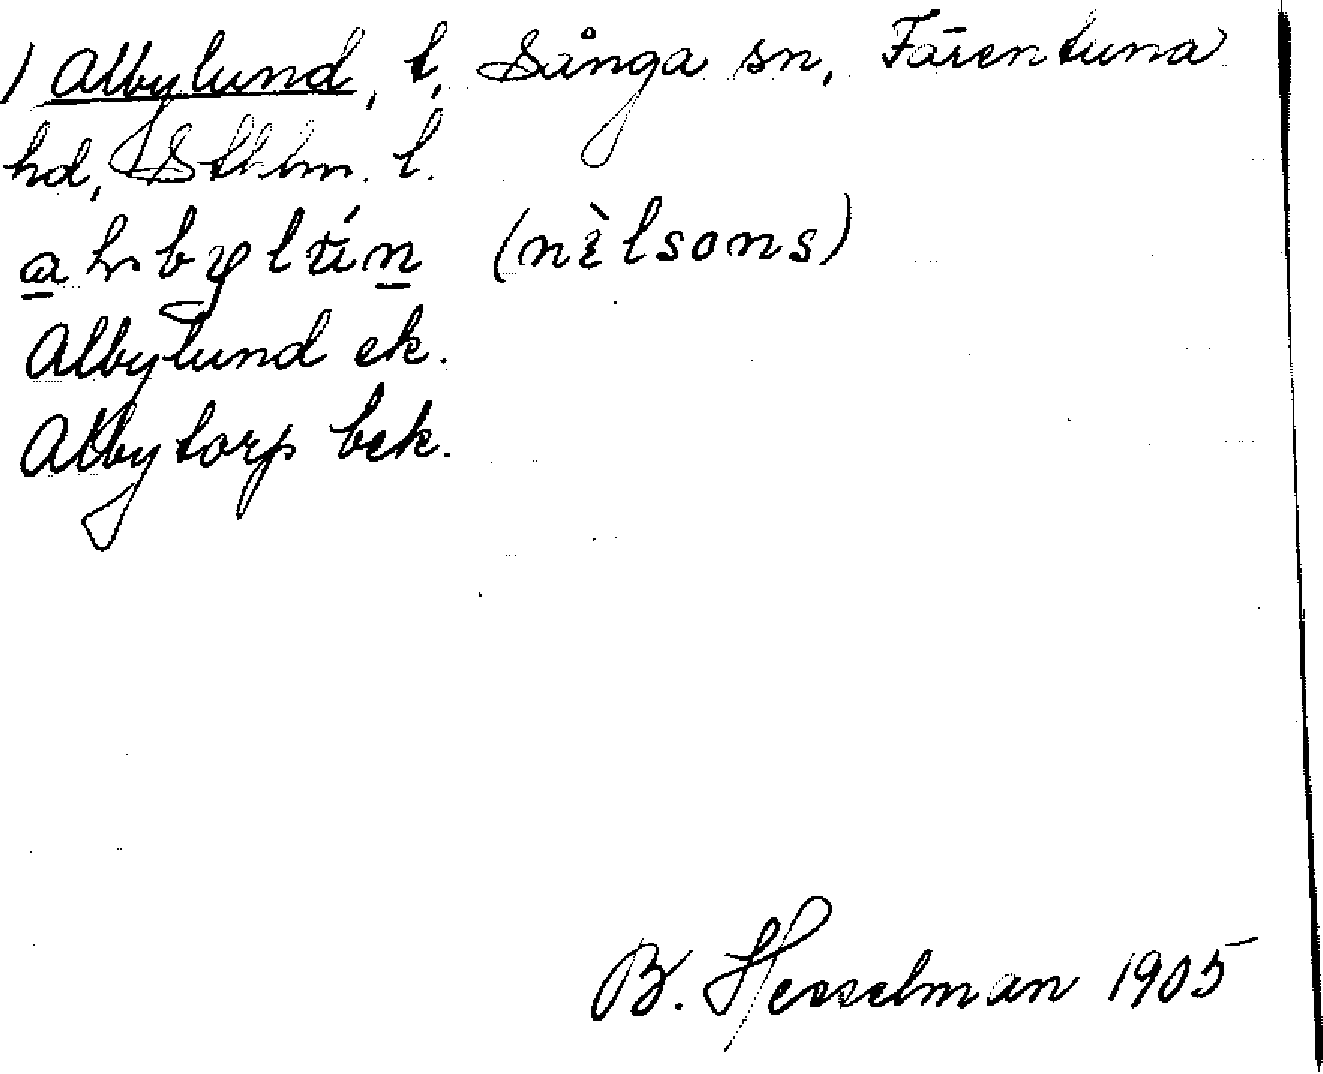 1 Albylund, t, Sånga sn, Färentuna
hd, Sthlm. l.
(nèlsons)
Albylund ek.
Albytorp bek.
B. Hesselman 1905